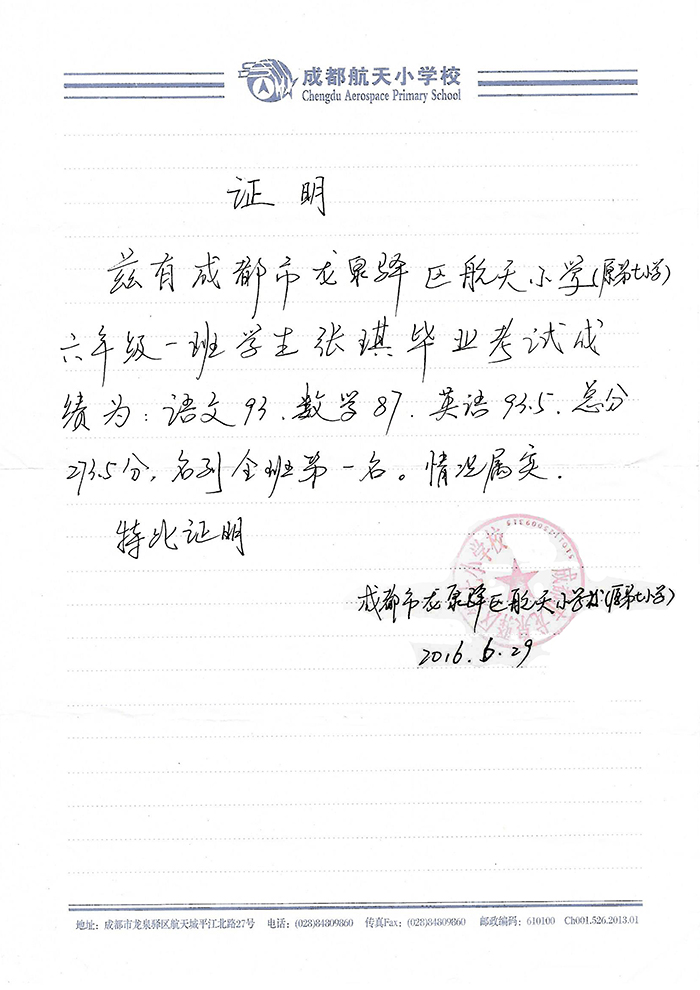 成都航天小学校
Chengdu Aerospace Primary School
证明
兹有成都市龙泉驿区航天小学(原第七小学)
六年级一班学生张琪毕业考试成
绩为：语文93、数学87、英语93.5、总分
273.5分，名列全班第一名。情况属实.
特此证明
成都市龙泉驿区航天小学校(原第七小学)
2016.6.29
地址：成都市龙泉驿区航天城平江北路27号 电话：(028)84809860 传真Fax：(028)84809860 邮政编码：610100 Ch001.526.2013.01